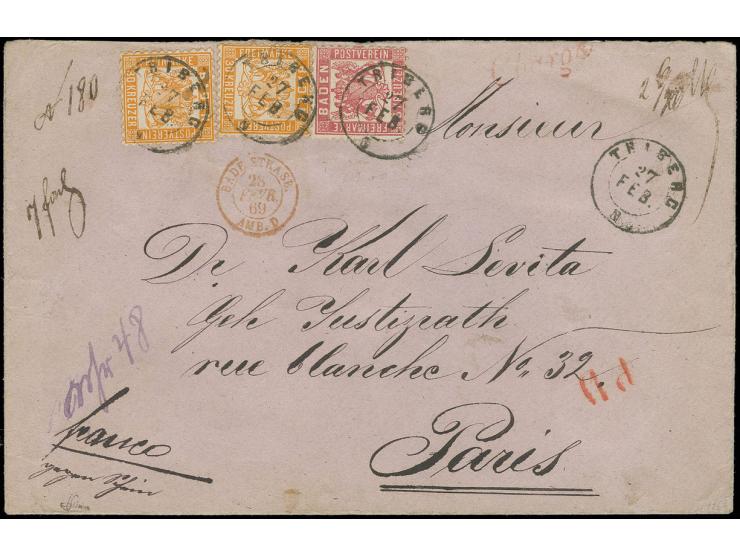 FREIMARKE
30 KREUZER
POSTVEREIN
FREIMARKE
POSTVEREIN
POSTVEREIN
BADEN
FREIMARKE
TRIBERG
27
FEB.
TRIBERG
27
FEB.
TRIBERG
27
FEB.
TRIBERG
27
FEB.
Chargé
№ 180
BADE STRASB.
28
FEVR.
69
AMB. D
Monsieur
Dr Karl Levita
Geh Justizrath
rue blanche No. 32.
Paris
P D
48
franco
gegen Schein